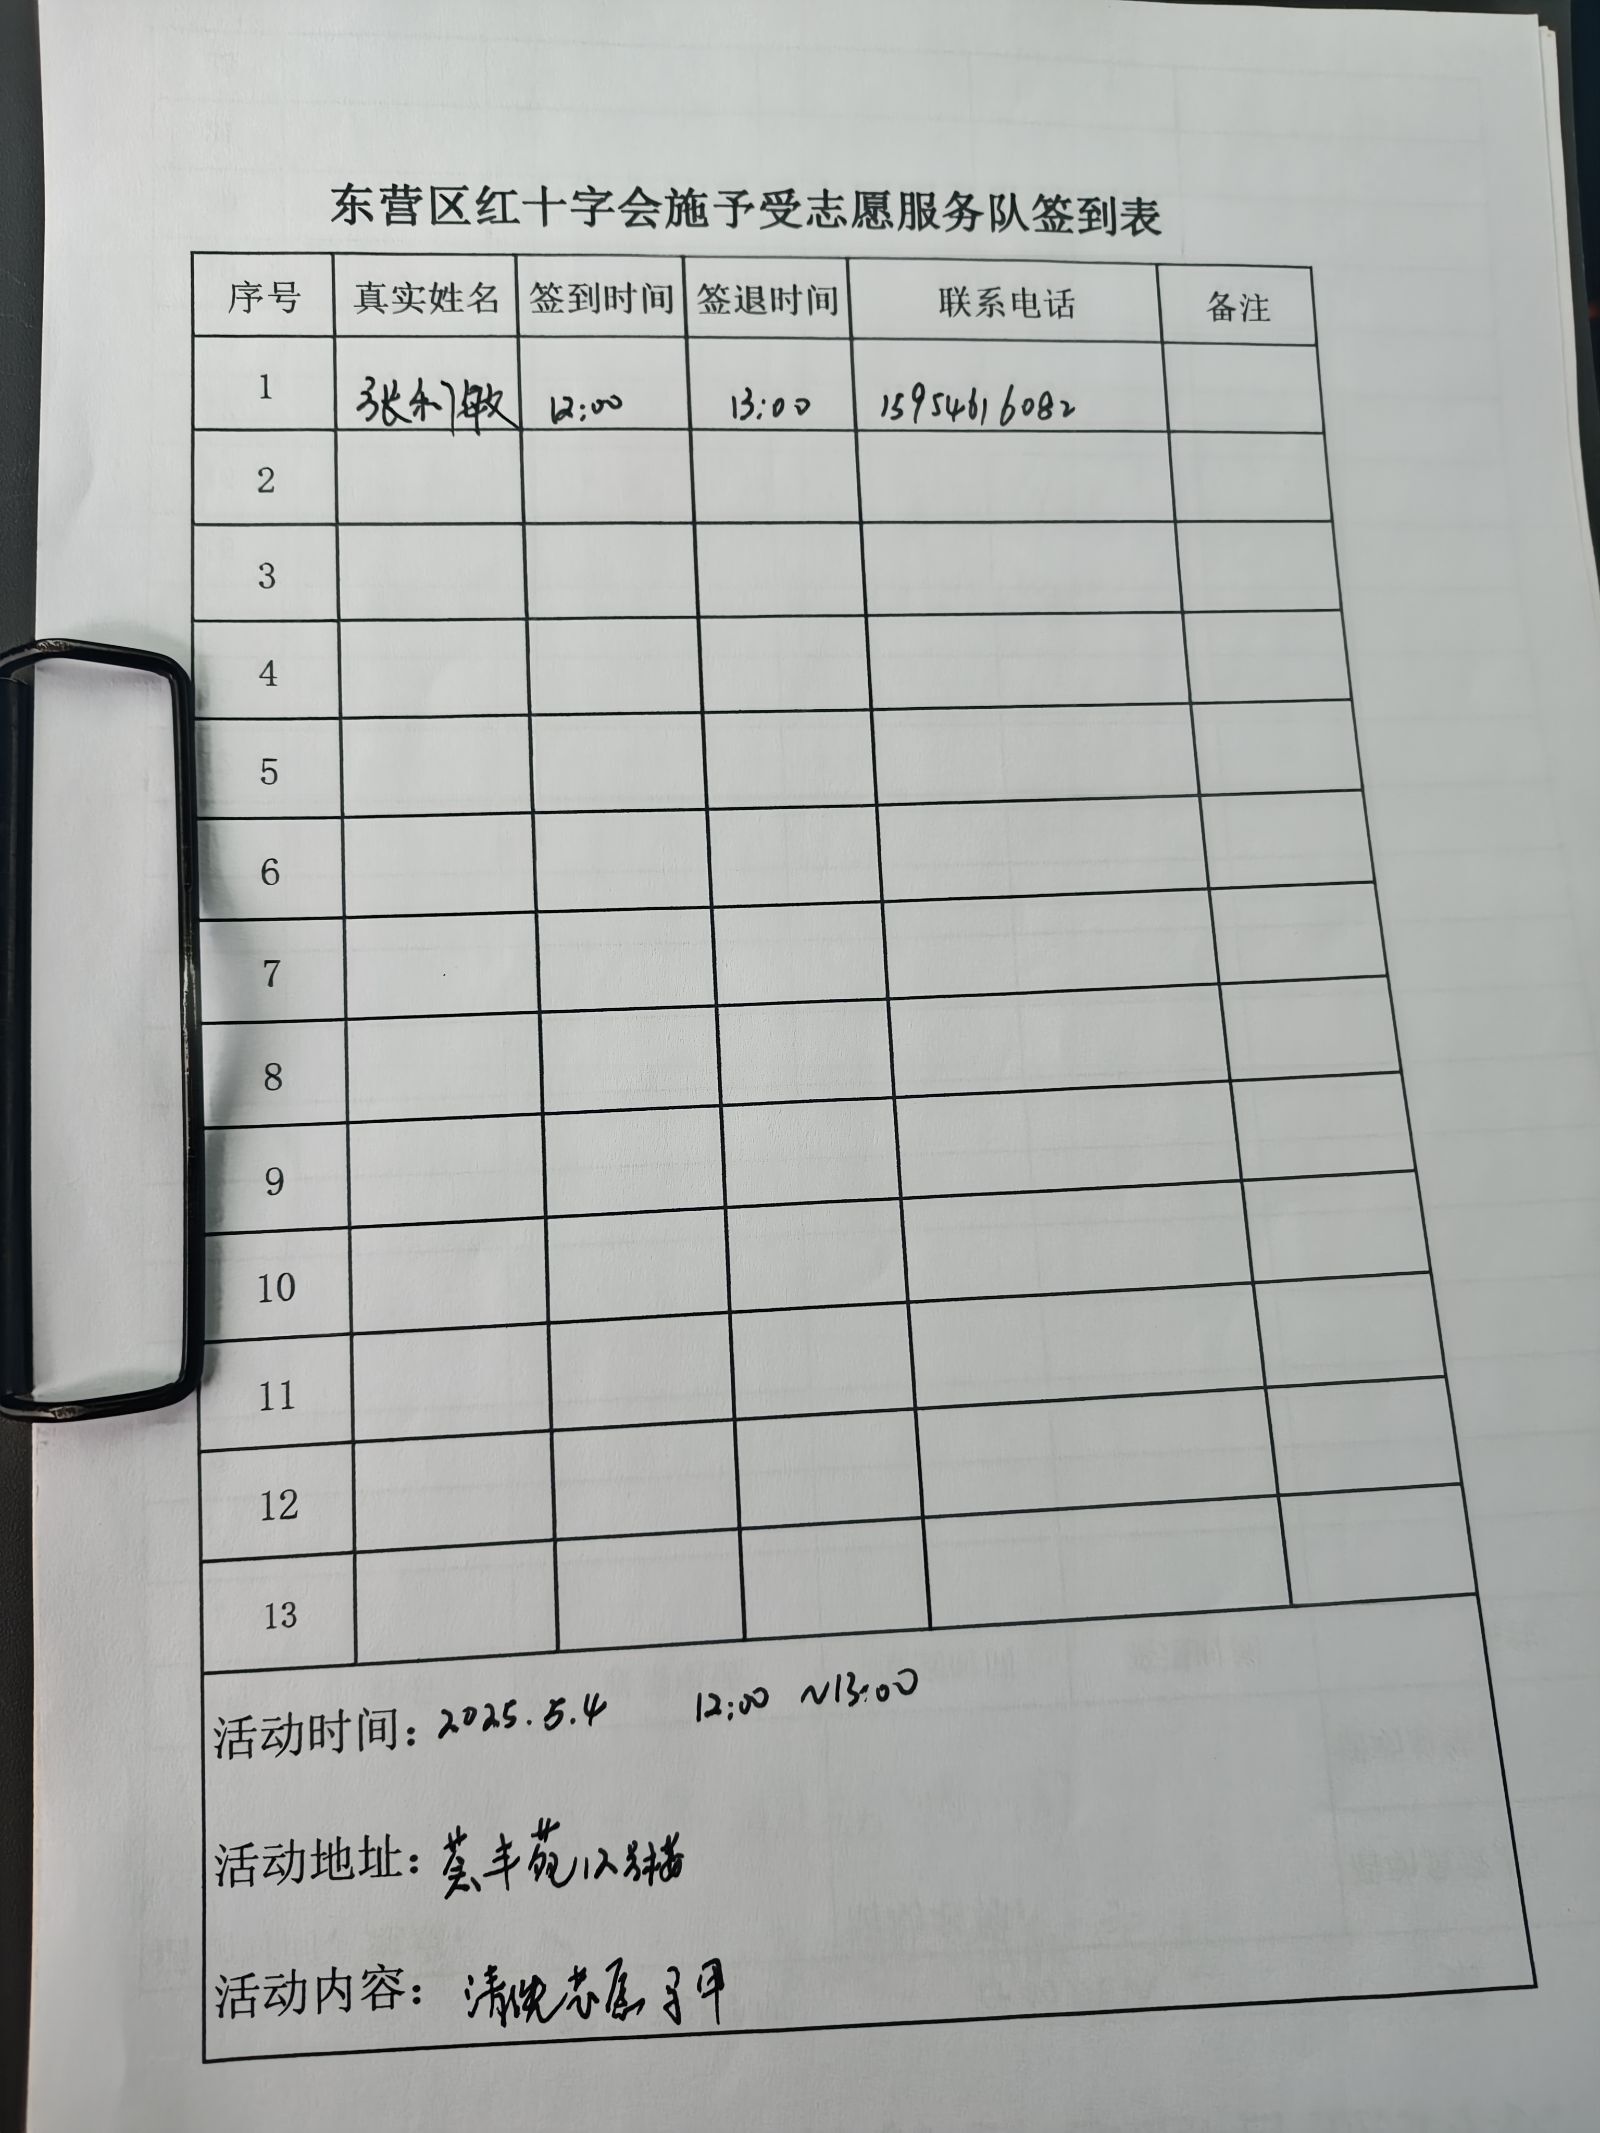 东营区红十字会施予受志愿服务队签到表
序号 真实姓名 签到时间 签退时间 联系电话 备注
1 张利敏 12:00 13:00 15954616082
2
3
4
5
6
7
8
9
10
11
12
13
活动时间：2025.5.4 12:00 ~13:00
活动地址：丰苑12号楼
活动内容：清洗